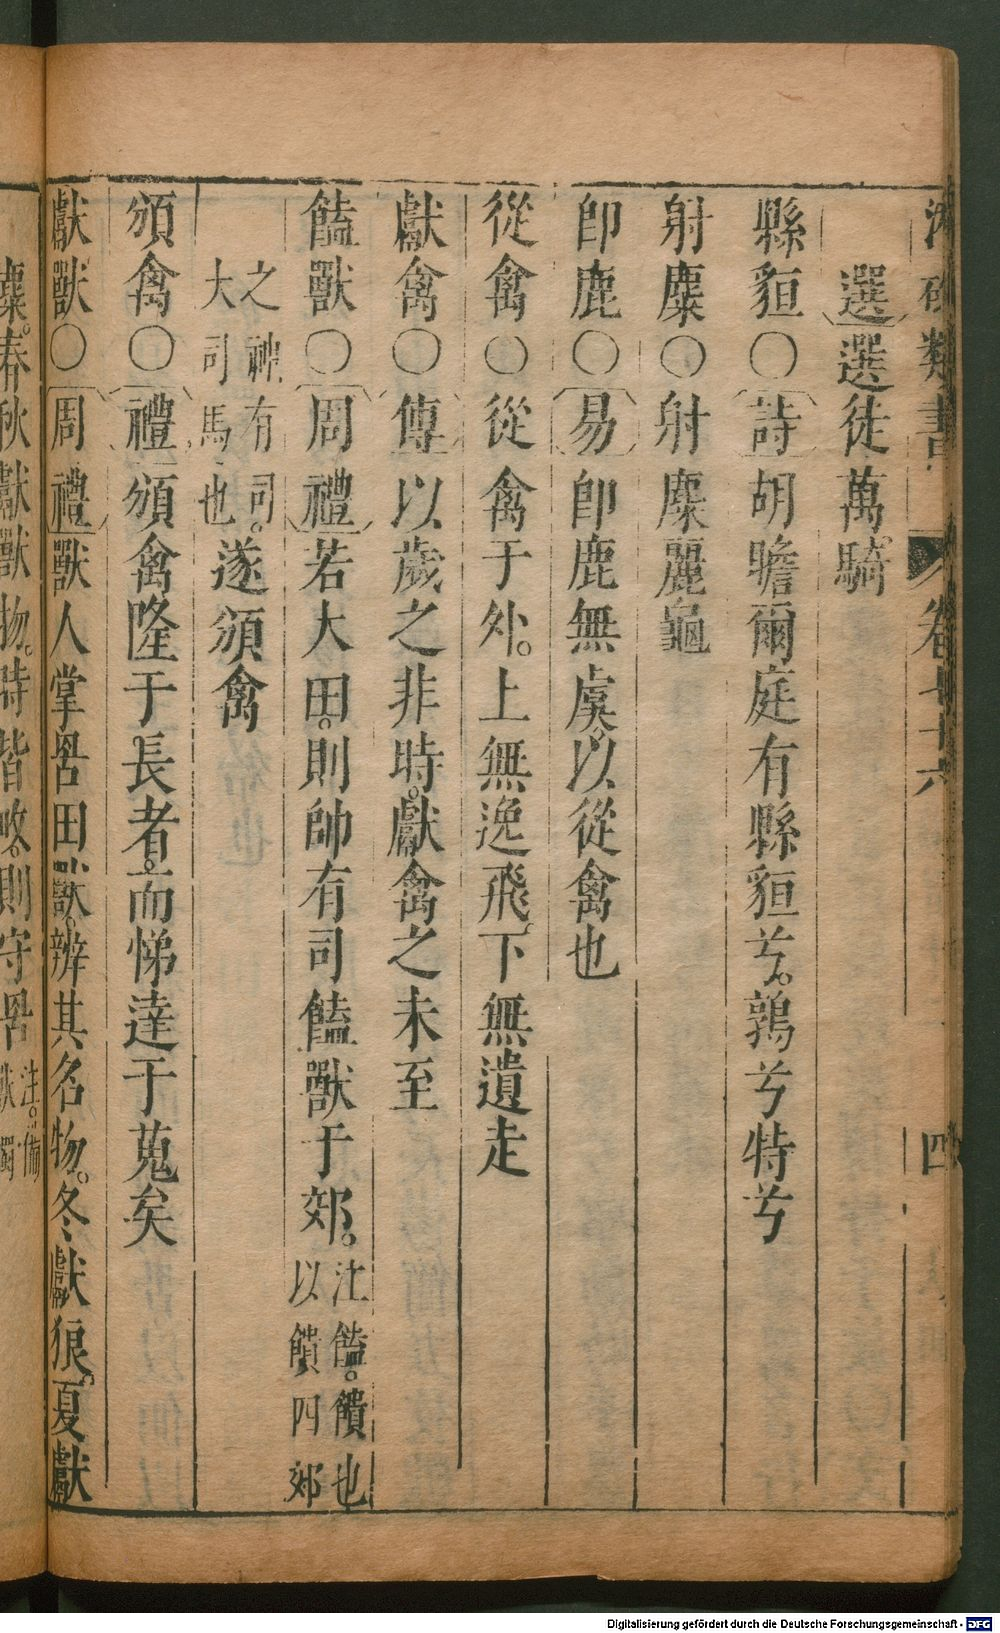 類書 卷 十六 四
選選徒萬騎
縣貆○詩胡瞻爾庭有縣貆兮。鶉兮特兮
射麋○射麋麗龜
即鹿○易即鹿無虞。以從禽也
從禽○從禽于外。上無逸飛。下無遺走
獻禽○傳以歲之非時。獻禽之未至
饁獸○周禮若大田。則帥有司饁獸于郊。注饁。饋也以饋四郊
之神有司。大司馬也遂頒禽
頒禽○禮頒禽隆于長者。而悌達于蒐矣
獻獸○周禮獸人掌罟田獸。辨其名物。冬獻狼。夏獻
麋。春秋獻獸物。時皆 則守罟 注。備獸觸
Digitalisierung gefördert durch die Deutsche Forschungsgemeinschaft - DFG